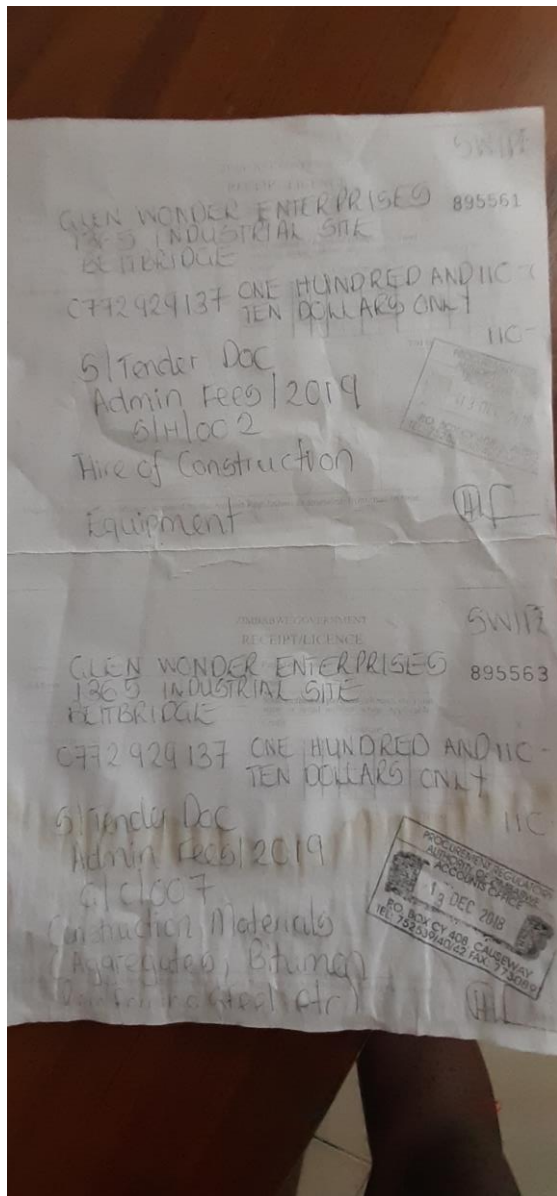 SWIP
RECEIPT/LICENCE
GLEN WONDER ENTERPRISES 895561
1365 INDUSTRIAL SITE
BEITBRIDGE
0772929137 ONE HUNDRED AND 110-
TEN DOLLARS ONLY
110-
S/Tender Doc
Admin Fees/2019
S/H/002
Hire of Construction
Equipment
ZIMBABWE GOVERNMENT
RECEIPT/LICENCE
GLEN WONDER ENTERPRISES 895563
1365 INDUSTRIAL SITE
BEITBRIDGE
0772929137 ONE HUNDRED AND 110-
TEN DOLLARS ONLY
S/Tender Doc 110
Admin Fees/2019
G/C/007
Construction Materials
Aggregates, Bitumen
Steel etc)
PROCUREMENT REGULATORY
AUTHORITY OF ZIMBABWE
ACCOUNTS OFFICE
13 DEC 2018
P.O. BOX CY 408, CAUSEWAY